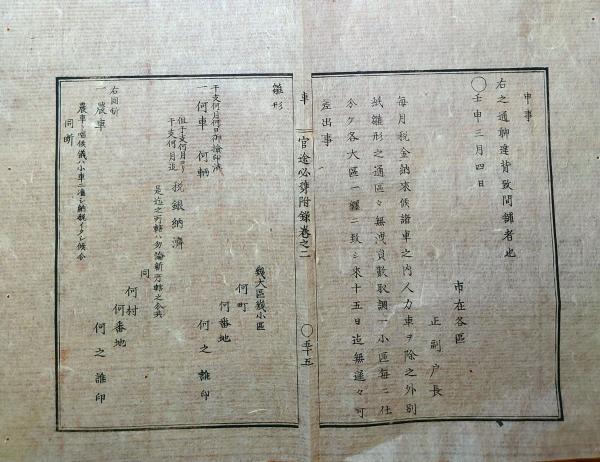 申事
右之通聊違背致間鋪者也
〇壬申三月四日
市在各區
正副戸長
毎月税金納來候諸車之内人力車ヲ除之外別
紙雛形之通區々無洩員數取調一小區毎ニ仕
分ケ各大區一纒ニ致シ來十五日迄無遅々可
差出事
車 官途必携附録巻之二 〇五十五
雛形
幾大區幾小區
何町
何番地
何之誰印
干支何月何日御檢印濟
一何車 何輛
但干支何月ヨリ
干支何月迄 税銀納濟
是迄之所轄ハ勿論新所轄之分共
同
何村
何番地
何之誰印
右同斷
一農車
農車唱候儀ハ小車ニ准シ納税イタシ候分
同斷